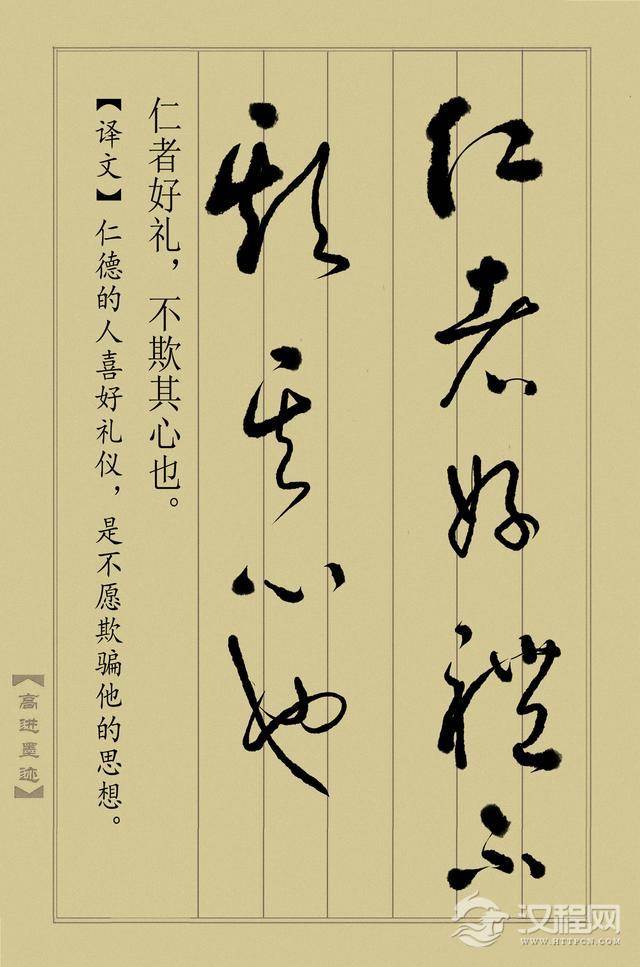 仁者好禮不
欺其心也
仁者好礼，不欺其心也。
【译文】仁德的人喜好礼仪，是不愿欺骗他的思想。
【高进墨迹】
汉程网
WWW.HTTPCN.COM